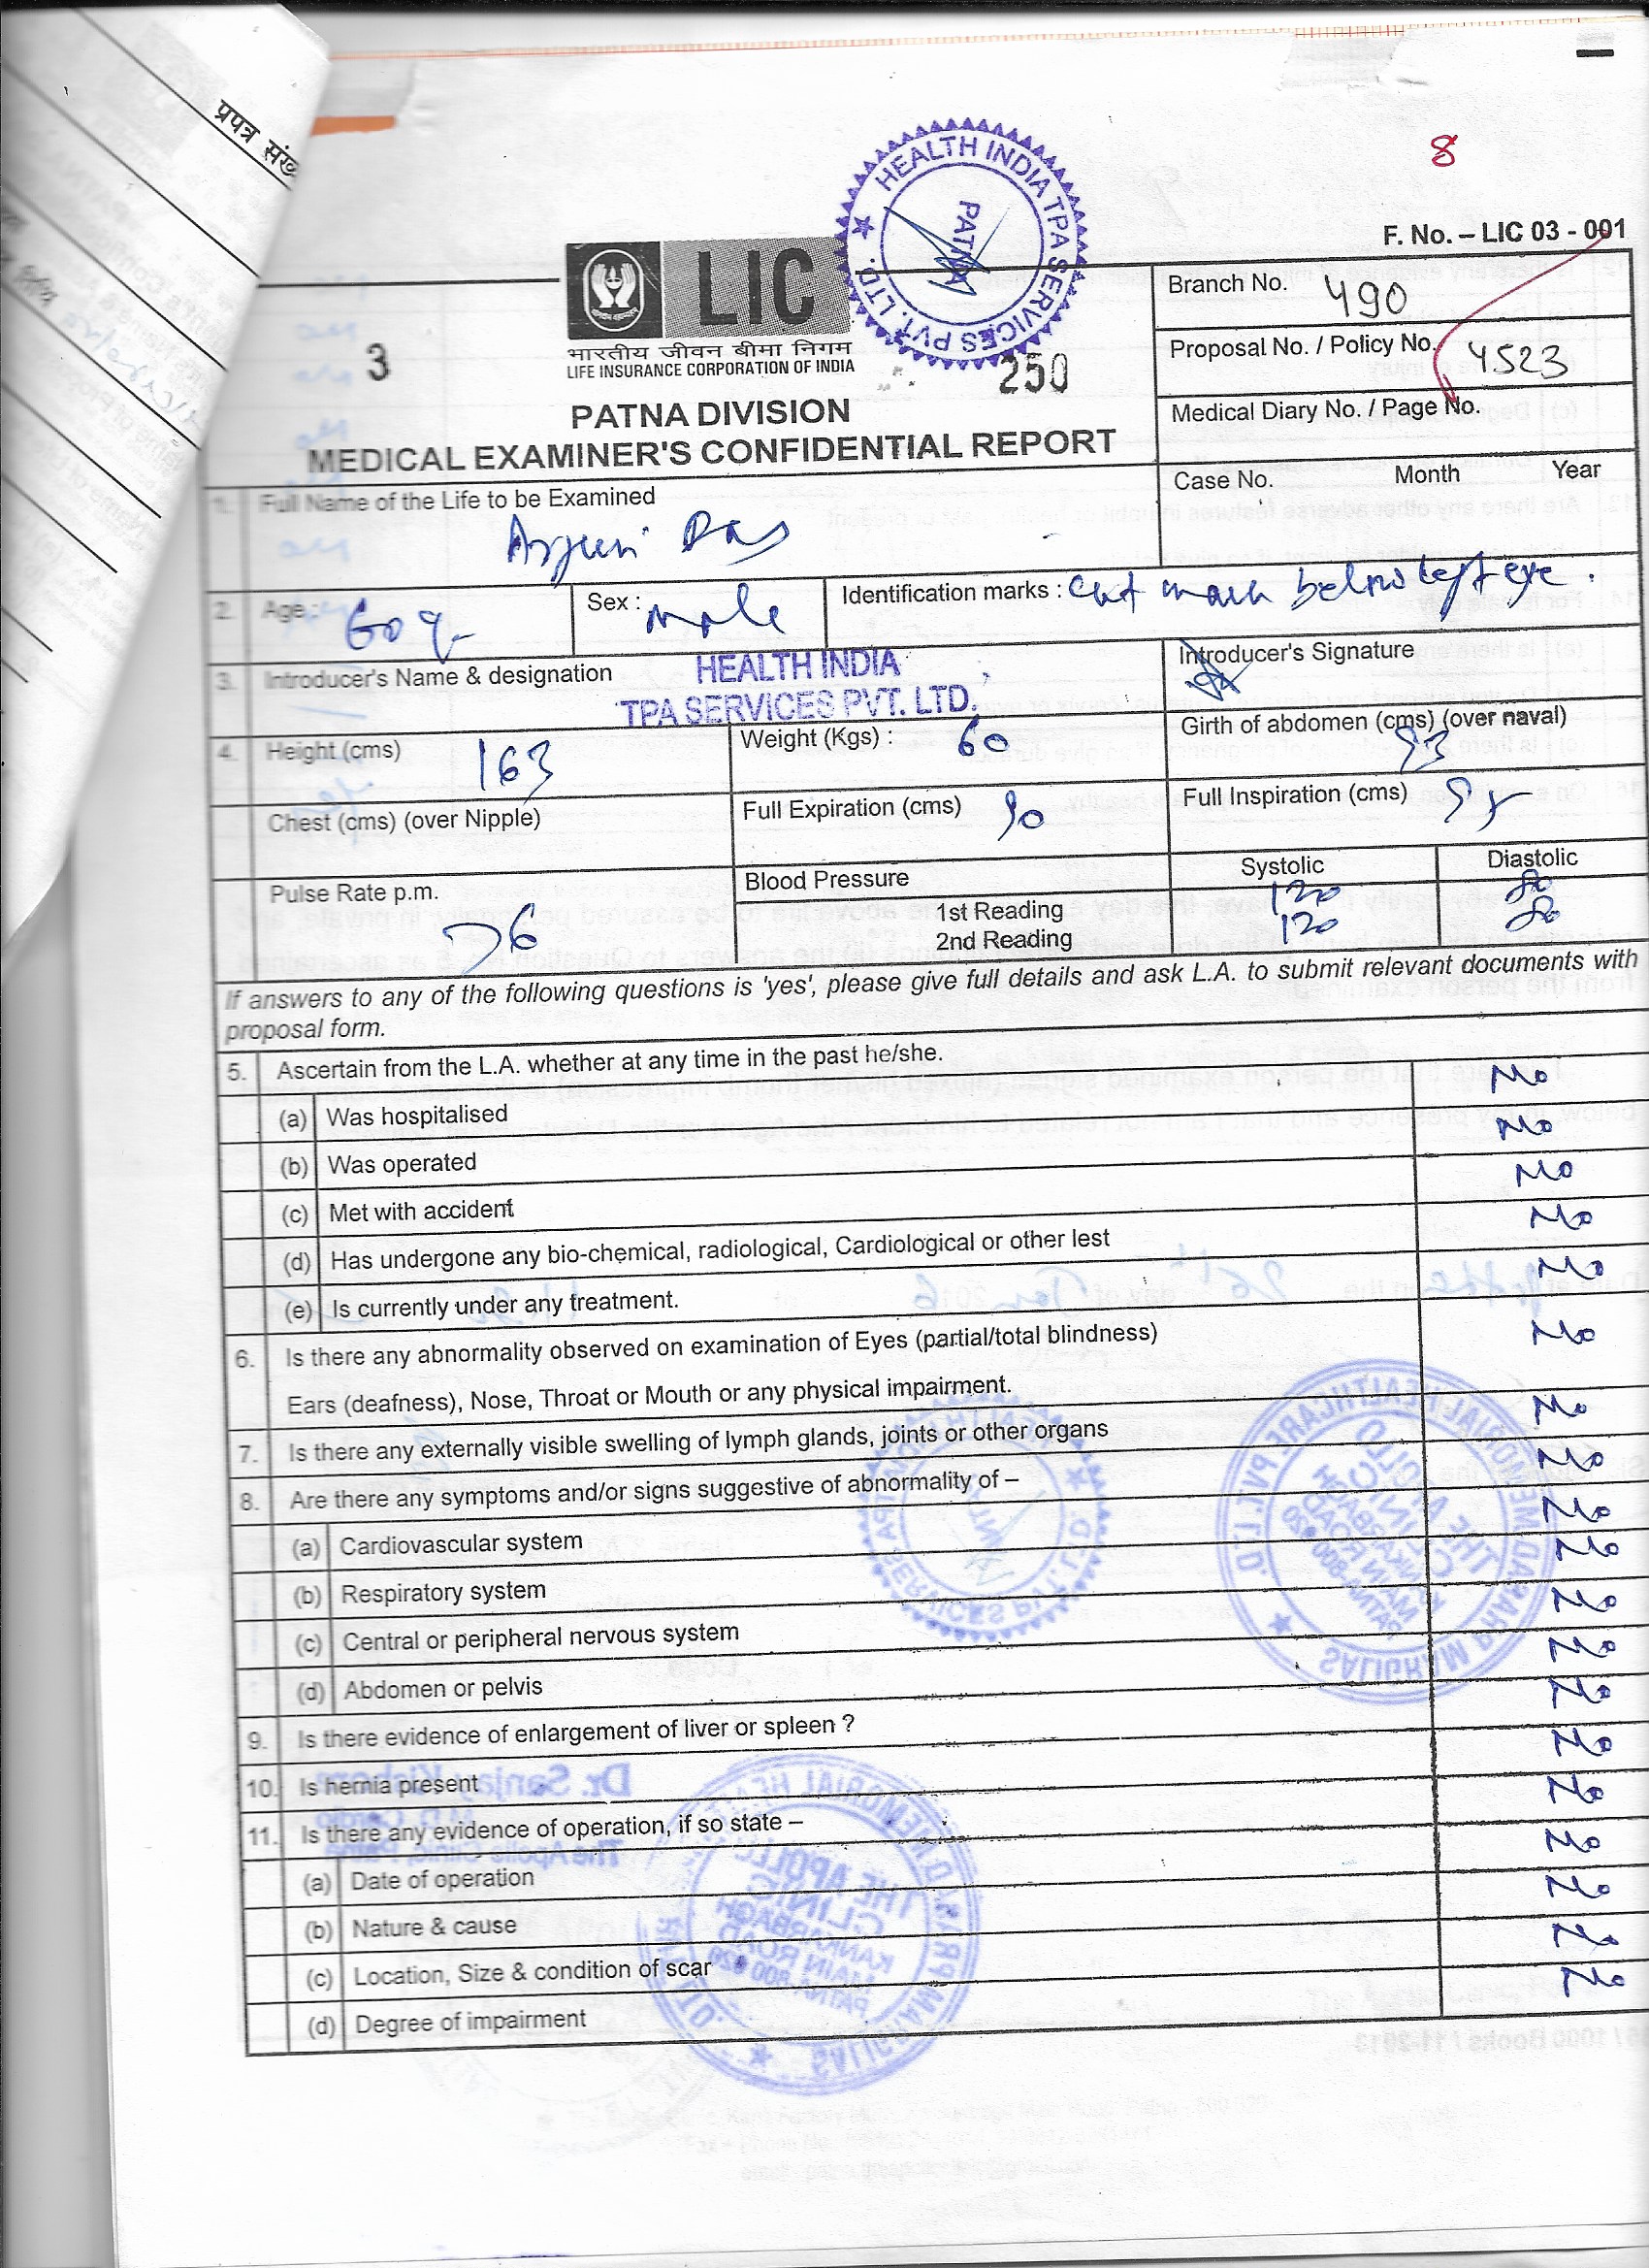 प्रपत्र संख
8
F. No. – LIC 03 - 001
HEALTH INDIA TPA SERVICES PVT. LTD.
PATNA
LIC
भारतीय जीवन बीमा निगम
LIFE INSURANCE CORPORATION OF INDIA
3
250
Branch No. 490
Proposal No. / Policy No. 4523
Medical Diary No. / Page No.
Case No. Month Year
PATNA DIVISION
MEDICAL EXAMINER'S CONFIDENTIAL REPORT
1. Full Name of the Life to be Examined
Arjun Das
2. Age : 60 y Sex : Male Identification marks : cut mark below left eye .
3. Introducer's Name & designation HEALTH INDIA TPA SERVICES PVT. LTD. Introducer's Signature
4. Height (cms) 163 Weight (Kgs) : 60 Girth of abdomen (cms) (over naval) 93
Chest (cms) (over Nipple) Full Expiration (cms) 90 Full Inspiration (cms) 95
Pulse Rate p.m. 76 Blood Pressure Systolic Diastolic
1st Reading 120 80
2nd Reading 120 80
If answers to any of the following questions is 'yes', please give full details and ask L.A. to submit relevant documents with
proposal form.
5. Ascertain from the L.A. whether at any time in the past he/she.
(a) Was hospitalised No
(b) Was operated No
(c) Met with accident No
(d) Has undergone any bio-chemical, radiological, Cardiological or other lest No
(e) Is currently under any treatment. No
6. Is there any abnormality observed on examination of Eyes (partial/total blindness) No
Ears (deafness), Nose, Throat or Mouth or any physical impairment.
7. Is there any externally visible swelling of lymph glands, joints or other organs No
8. Are there any symptoms and/or signs suggestive of abnormality of – No
(a) Cardiovascular system No
(b) Respiratory system No
(c) Central or peripheral nervous system No
(d) Abdomen or pelvis No
9. Is there evidence of enlargement of liver or spleen ? No
10. Is hernia present No
11. Is there any evidence of operation, if so state – No
(a) Date of operation No
(b) Nature & cause No
(c) Location, Size & condition of scar No
(d) Degree of impairment No